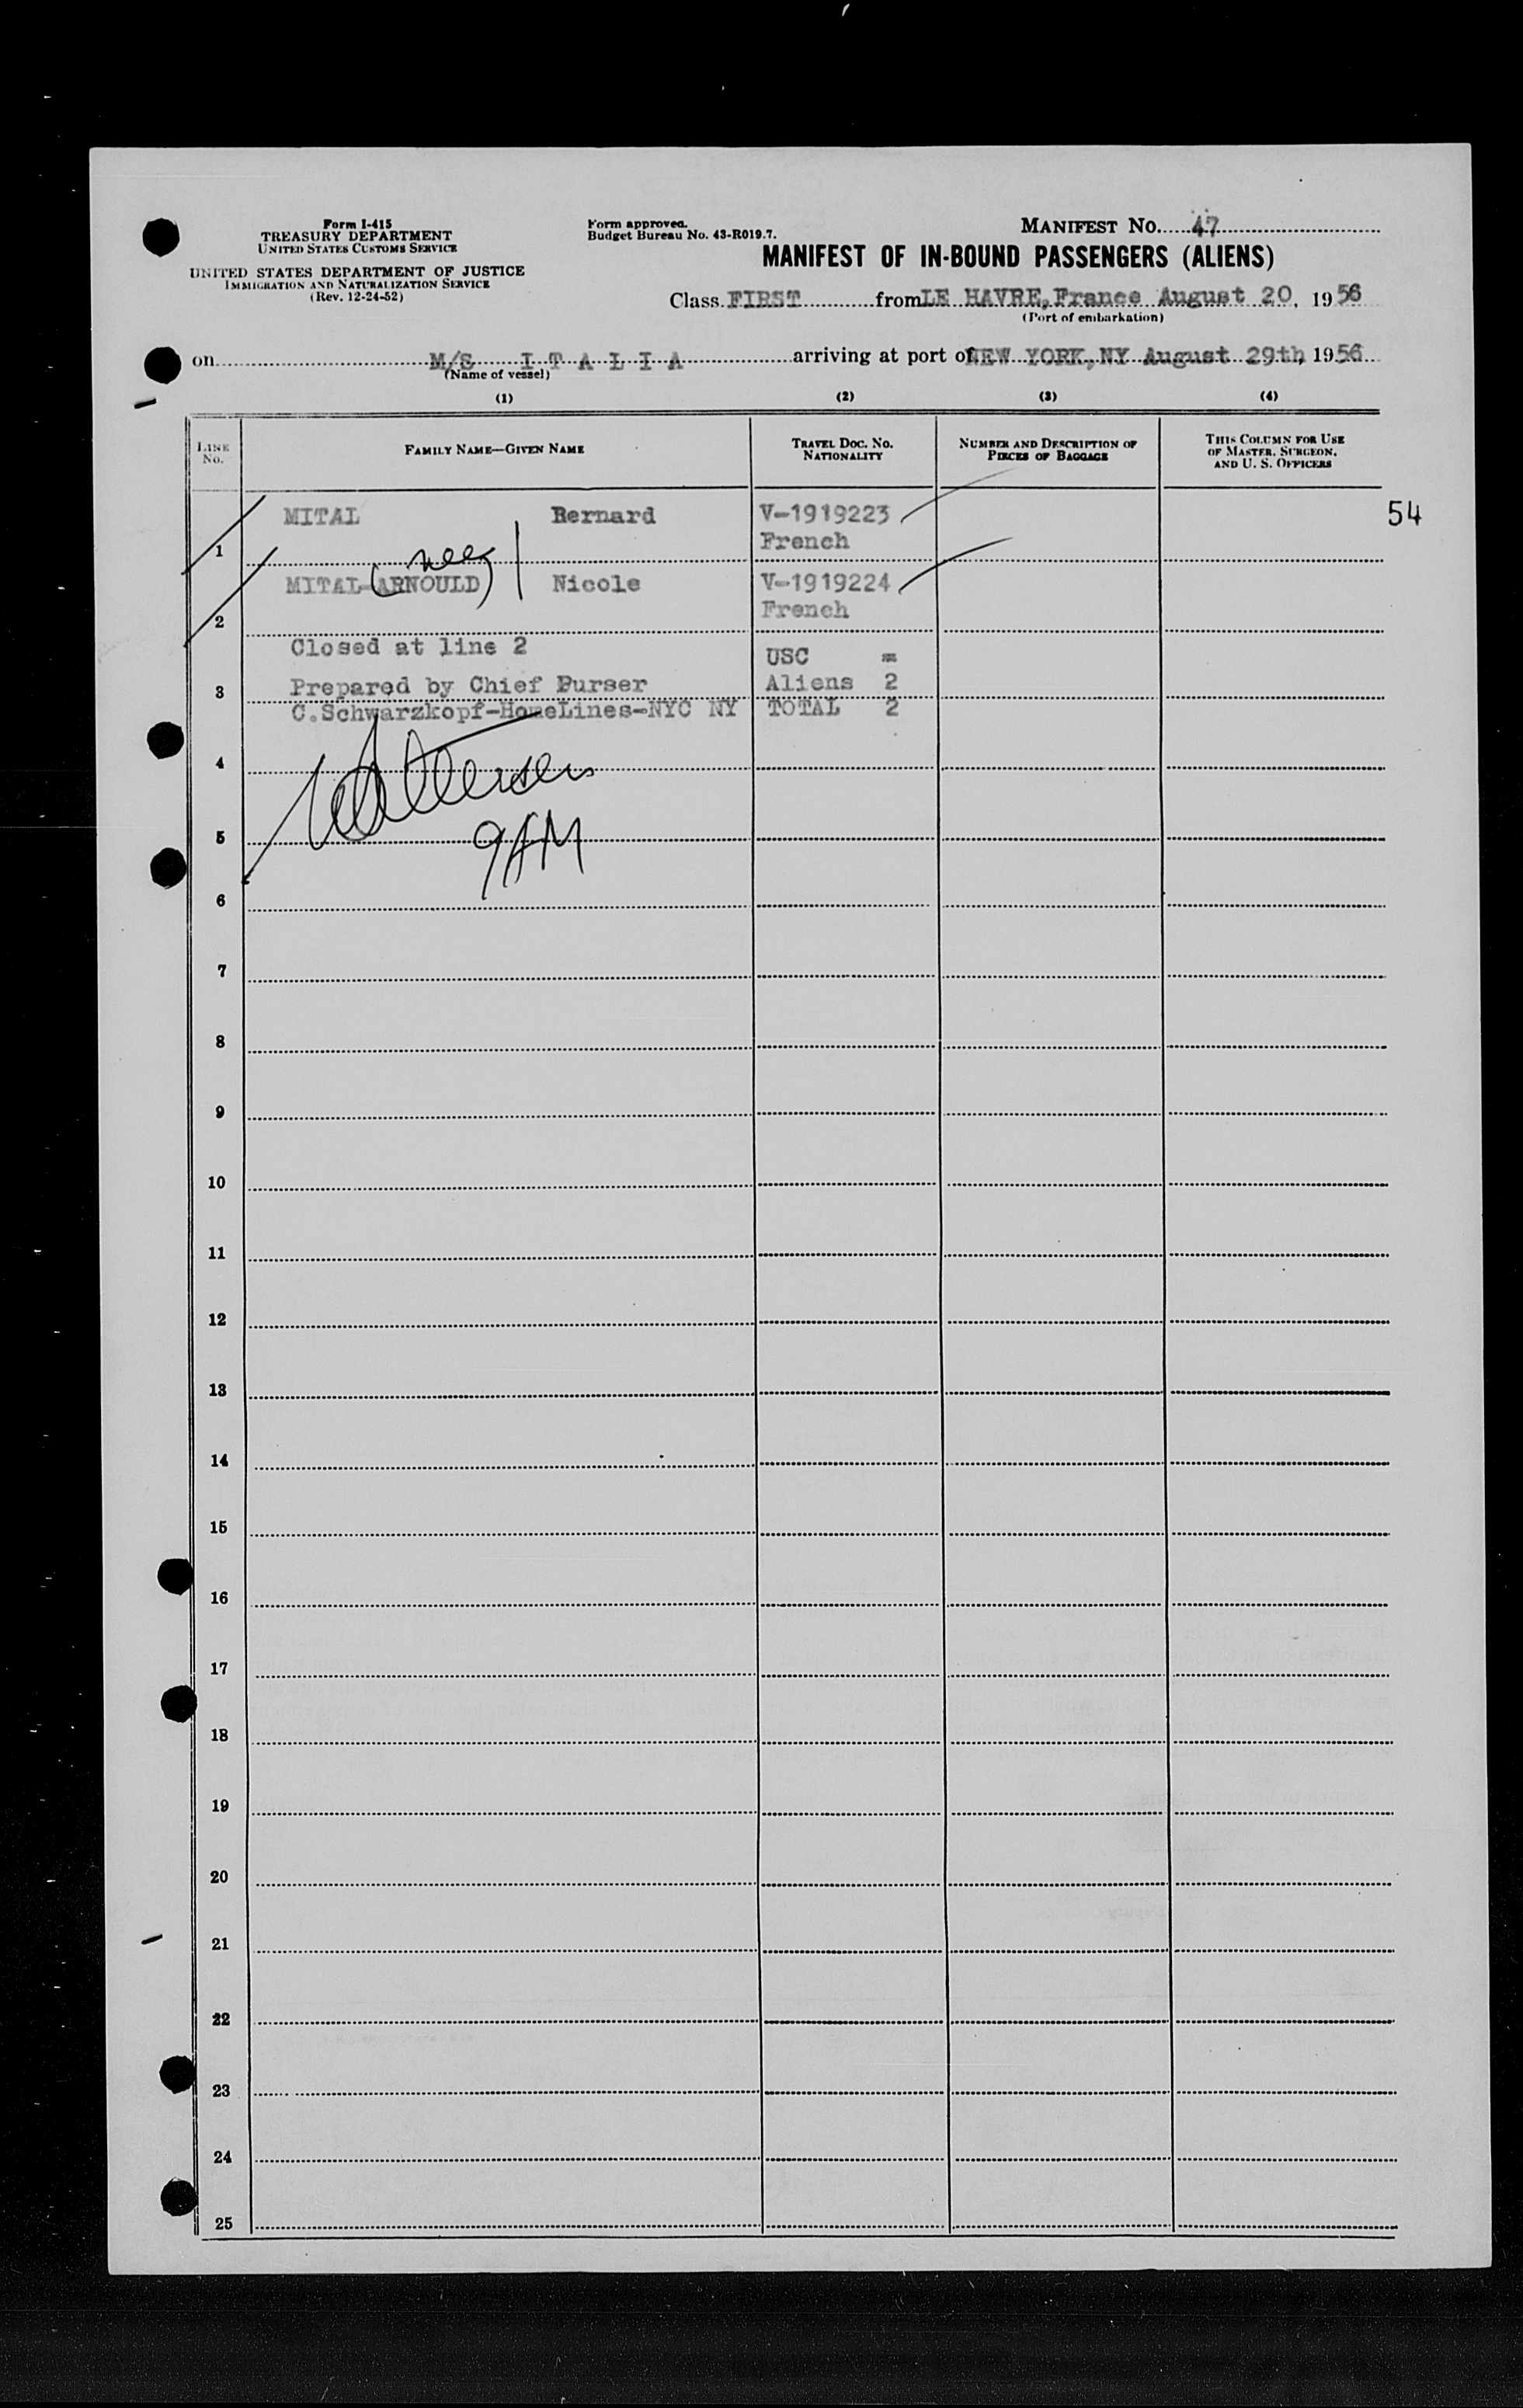 Form I-415
TREASURY DEPARTMENT
UNITED STATES CUSTOMS SERVICE
UNITED STATES DEPARTMENT OF JUSTICE
IMMIGRATION AND NATURALIZATION SERVICE
(Rev. 12-24-52)
Form approved.
Budget Bureau No. 43-R019.7.
MANIFEST No. 47
MANIFEST OF IN-BOUND PASSENGERS (ALIENS)
Class FIRST from LE HAVRE, France August 20, 1956
(Port of embarkation)
on M/S I T A L I A arriving at port of NEW YORK, NY August 29th, 1956
(Name of vessel)
(1) (2) (3) (4)
LINE No. FAMILY NAME—GIVEN NAME TRAVEL DOC. NO. NATIONALITY NUMBER AND DESCRIPTION OF PIECES OF BAGGAGE THIS COLUMN FOR USE OF MASTER, SURGEON, AND U. S. OFFICERS
MITAL Bernard V-1919223 54
1 French
nee
MITAL-(ARNOULD) Nicole V-1919224
2 French
Closed at line 2 USC =
3 Prepared by Chief Purser Aliens 2
C.Schwarzkopf-HomeLines-NYC NY TOTAL 2
4
5 9AM
6
7
8
9
10
11
12
13
14
15
16
17
18
19
20
21
22
23
24
25